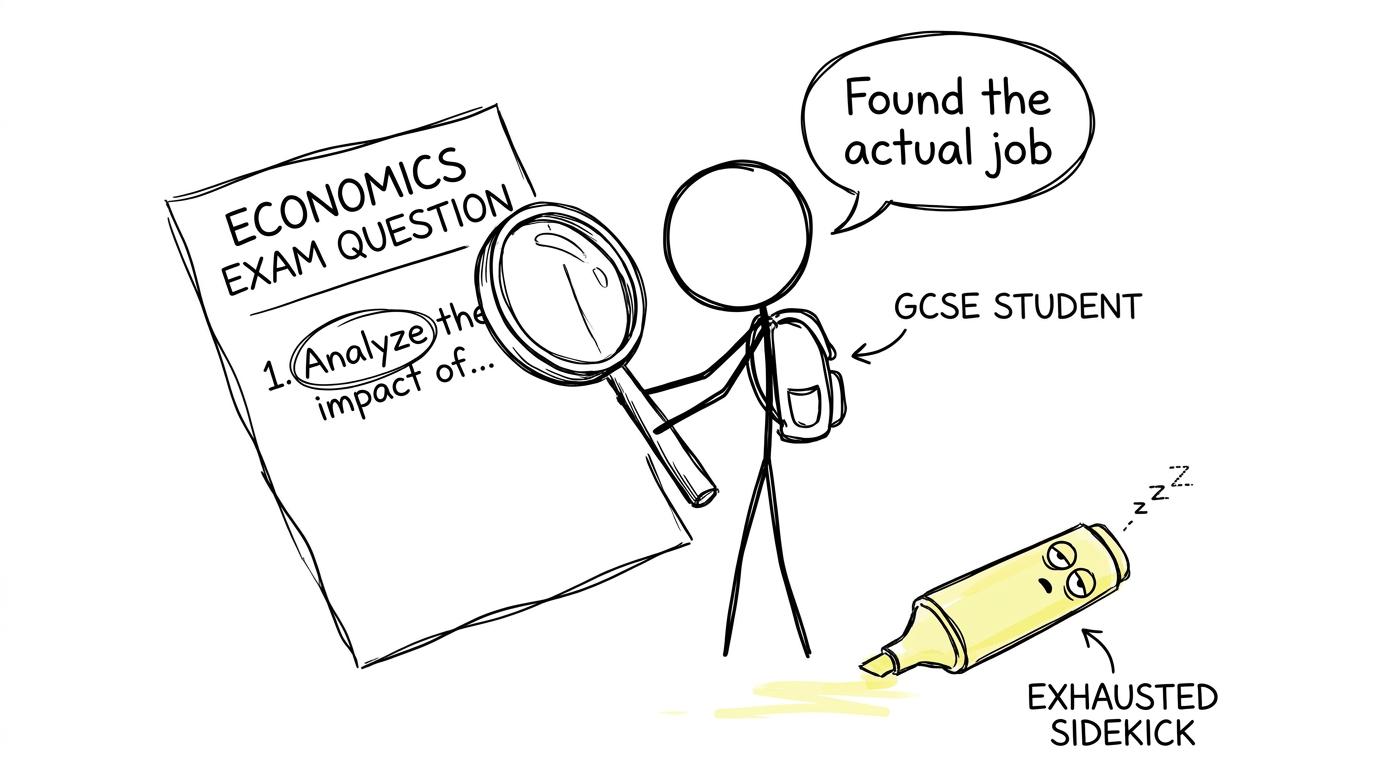 ECONOMICS
EXAM QUESTION
1. Analyze the
impact of...
Found the
actual job
GCSE STUDENT
z z Z
EXHAUSTED
SIDEKICK